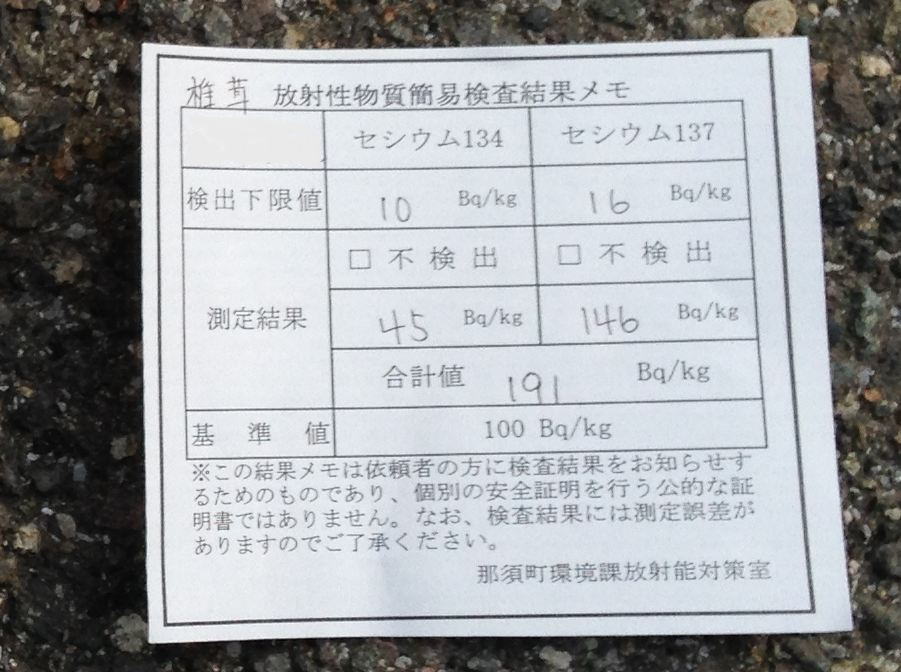 椎茸 放射性物質簡易検査結果メモ
セシウム134 セシウム137
検出下限値 10 Bq/kg 16 Bq/kg
□ 不検出 □ 不検出
測定結果 45 Bq/kg 146 Bq/kg
合計値 191 Bq/kg
基準値 100 Bq/kg
※この結果メモは依頼者の方に検査結果をお知らせす
るためのものであり、個別の安全証明を行う公的な証
明書ではありません。なお、検査結果には測定誤差が
ありますのでご了承ください。
那須町環境課放射能対策室